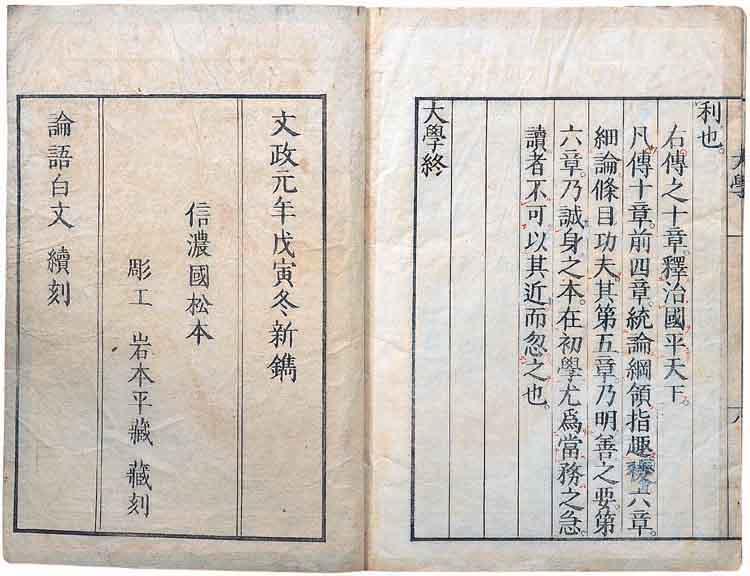 利也。
右傳之十章。釋治國平天下。
凡傳十章。前四章。統論綱領指趣。後六章。
細論條目功夫。其第五章。乃明善之要。第
六章。乃誠身之本。在初學尤爲當務之急。
讀者不可以其近而忽之也。
大學終
大學
六
文政元年戊寅冬新鐫
信濃國松本
彫工 岩本平藏 藏刻
論語白文 續刻